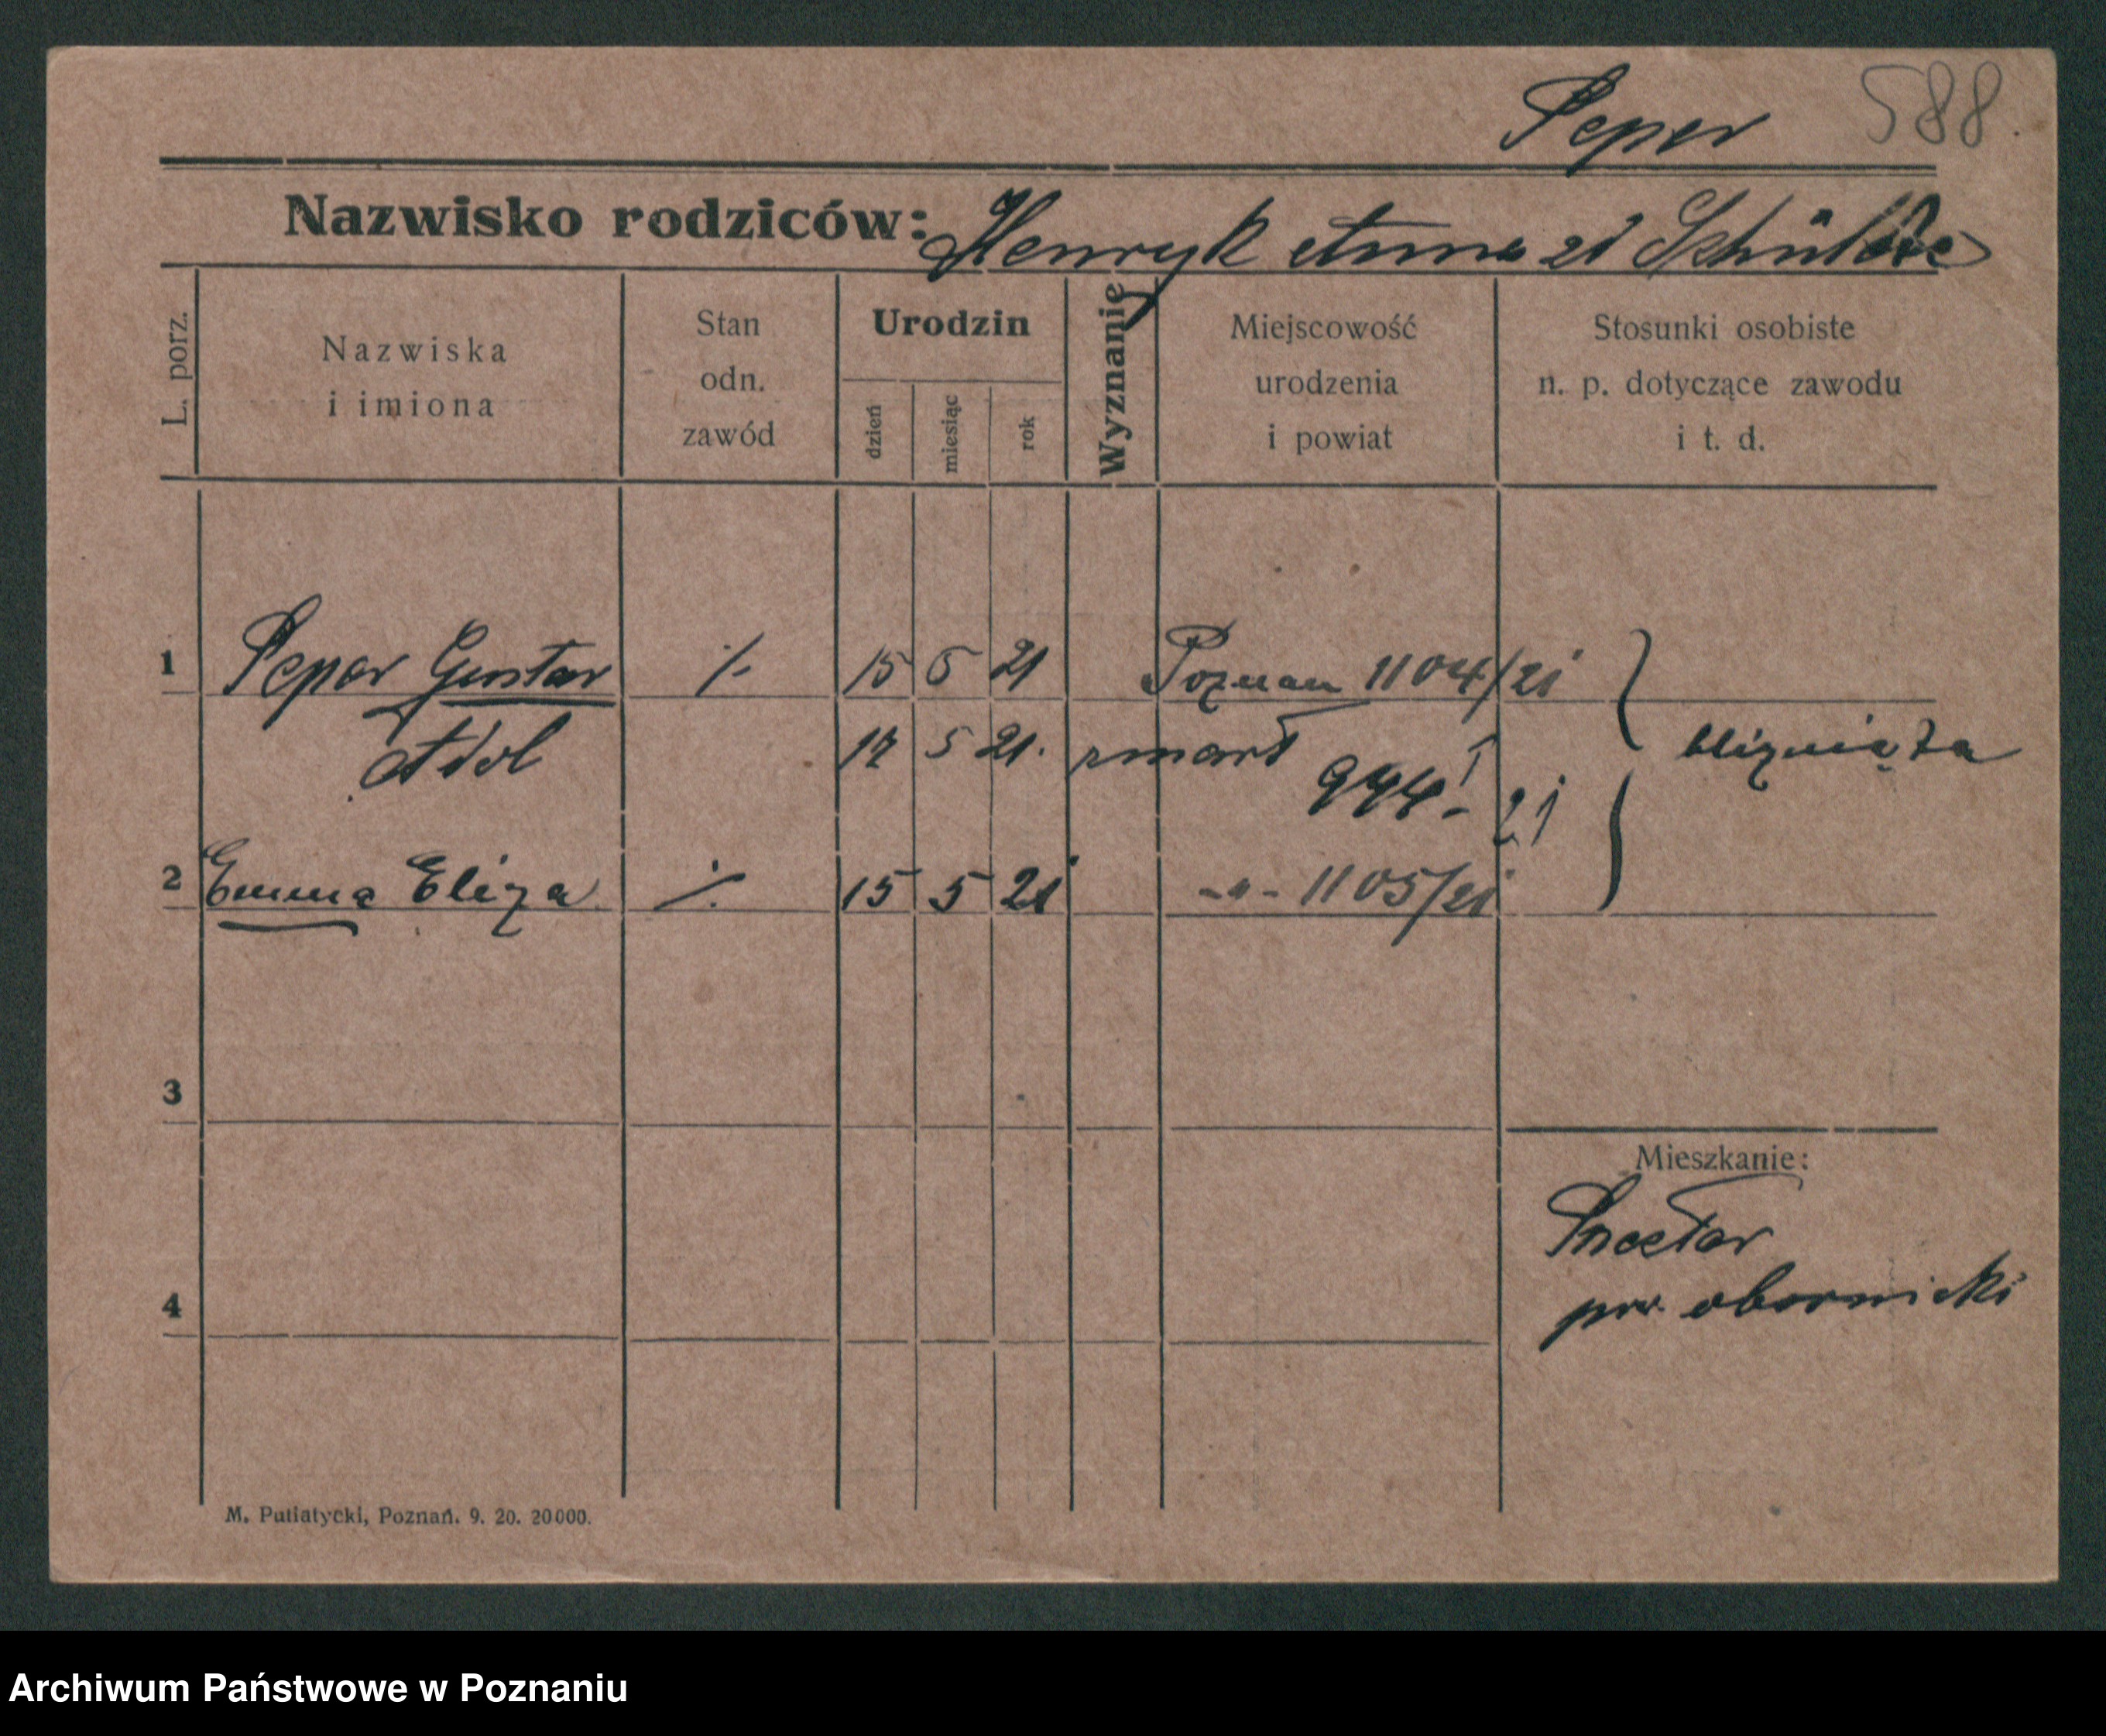 Peper 588.
Nazwisko rodziców: Henryk Anna zd
L. porz.
Nazwiska
i imiona
Stan
odn.
zawód
Urodzin
dzień
miesiąc
rok
Wyznanie
Miejscowość
urodzenia
i powiat
Stosunki osobiste
n. p. dotyczące zawodu
i t. d.
1 Peper Gustav ·/. 15 5 21 Poznan 1104/21
Adol 17 5 21. zmarł 994 I - 21
bliznięta
2 Emma Eliza ·/. 15 5 21 -"- 1105/21
3
Mieszkanie:
pow. obornicki
4
M. Putiatycki, Poznań. 9. 20. 20000.
Archiwum Państwowe w Poznaniu